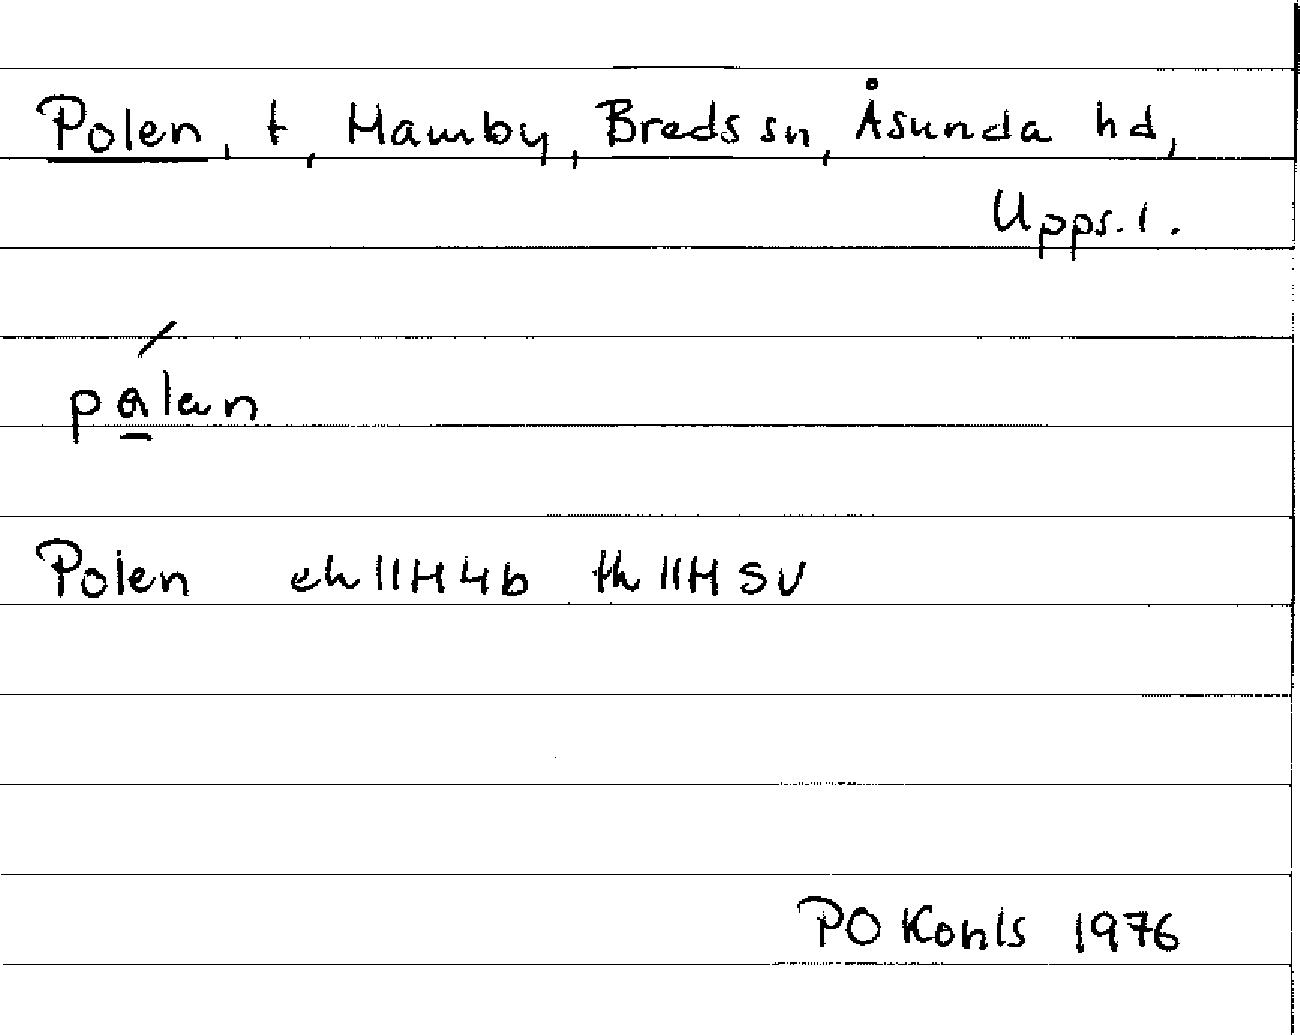 Polen, t, Hamby, Breds sn, Åsunda hd,
Upps. l.
Polen ek 11H4b tk 11H SV
PO Kohls 1976